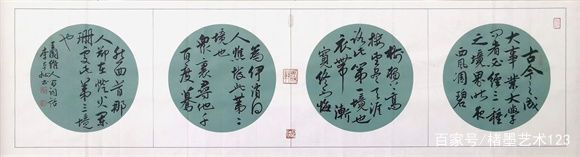 古今之成
大事業大學
问者必經三種
之境界昨夜
西風凋碧
樹獨上高
樓望盡天涯
路此第一境也
衣帶漸
寬終不悔
為伊消得
人憔悴此第二
境也
衆裏尋他千
百度驀
然回首那
人卻在燈火闌
珊處此第三境
也
人间词话
百家号/楮墨艺术123